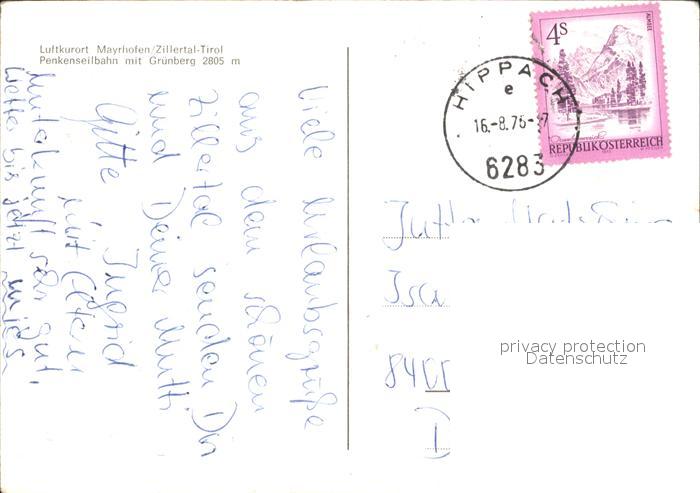 Luftkurort Mayrhofen/Zillertal-Tirol
Penkenseilbahn mit Grünberg 2805 m
Viele Urlaubsgrüße
aus dem schönen
Zillertal senden Dir
und Deiner Mutti
Gitte Ingrid
mit Eltern
Unterkunft sehr gut,
Wetter bis jetzt mies.
4S
ALMSEE
REPUBLIK ÖSTERREICH
HIPPACH
e
16.-8.76-
6283
84
D
privacy protection
Datenschutz